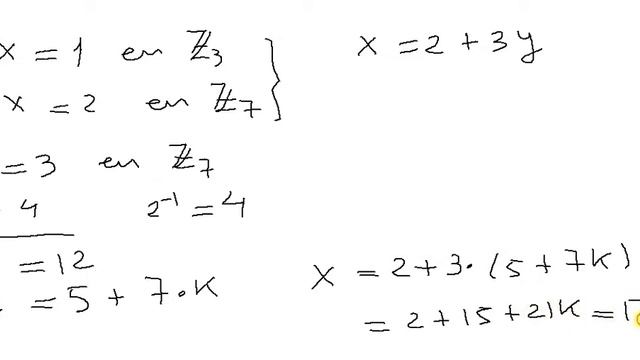 x = 1 en ℤ₃
x = 2 en ℤ₇
x = 2 + 3y
= 3 en ℤ₇
4 2⁻¹ = 4
= 12
= 5 + 7·k
x = 2 + 3·(5 + 7k)
= 2 + 15 + 21k = 1